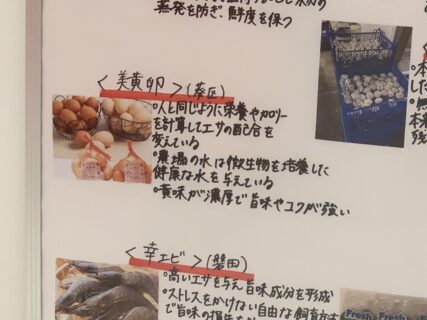 蒸発を防ぎ、鮮度を保つ
<美黄卵>(葵区)
・人と同じように栄養やカロリー
を計算してエサの配合を
変えている
・農場の水は微生物を培養した
健康な水を与えている
・黄味が濃厚で旨味やコクが強い
<幸エビ>(磐田)
・高いエサを与え旨味成分を形成
・ストレスをかけない自由な飼育
で旨味の
Fresh Fresh